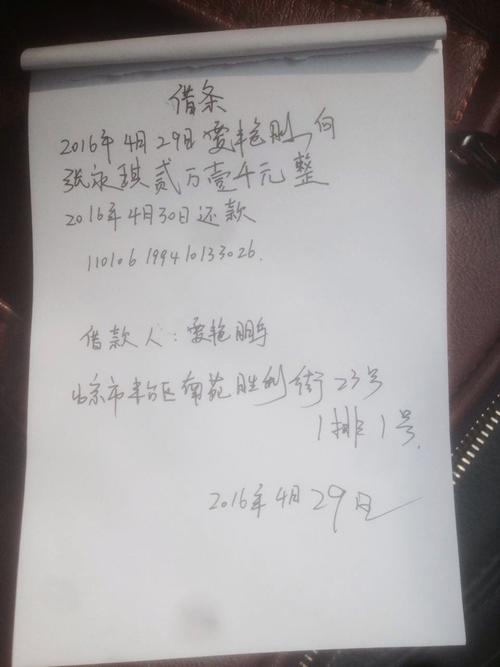 借条
2016年4月29日 艳 向
张永琪贰万壹千元整
2016年4月30日还款
110106199410133026.
借款人: 艳鹏
北京市丰台区南苑胜利街23号
1排1号.
2016年4月29日